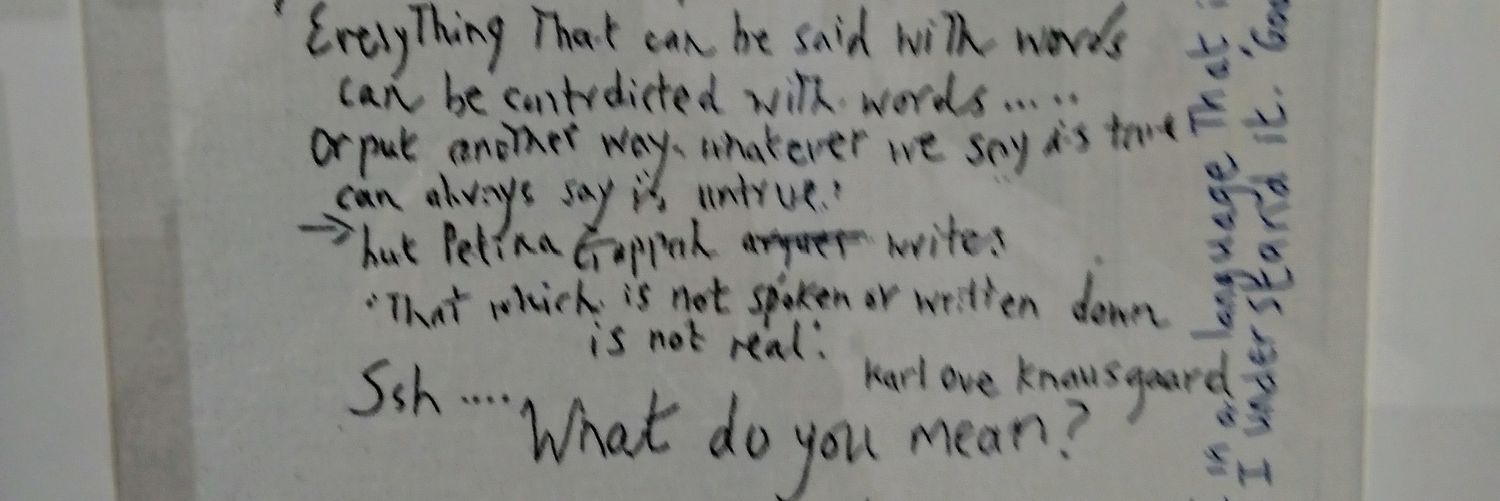 'Everything That can be said with words
can be contrdicted with words.....
Or put another way. whatever we say is true
can always say is untrue.'
→ but Petina Gappah arguer writes
'That which is not spoken or written down
is not real'.
Karl Ove Knausgaard
Ssh .... What do you mean?
in a language That i
I understand it. 'Goo